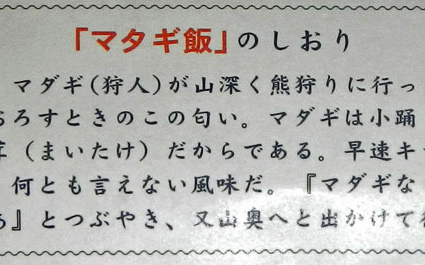 「マタギ飯」のしおり
マダギ(狩人)が山深く熊狩りに行っ
ろすときのこの匂い。マダギは小踊
(まいたけ)だからである。早速キ
何とも言えない風味だ。『マダギな
』とつぶやき、又山奥へと出かけて